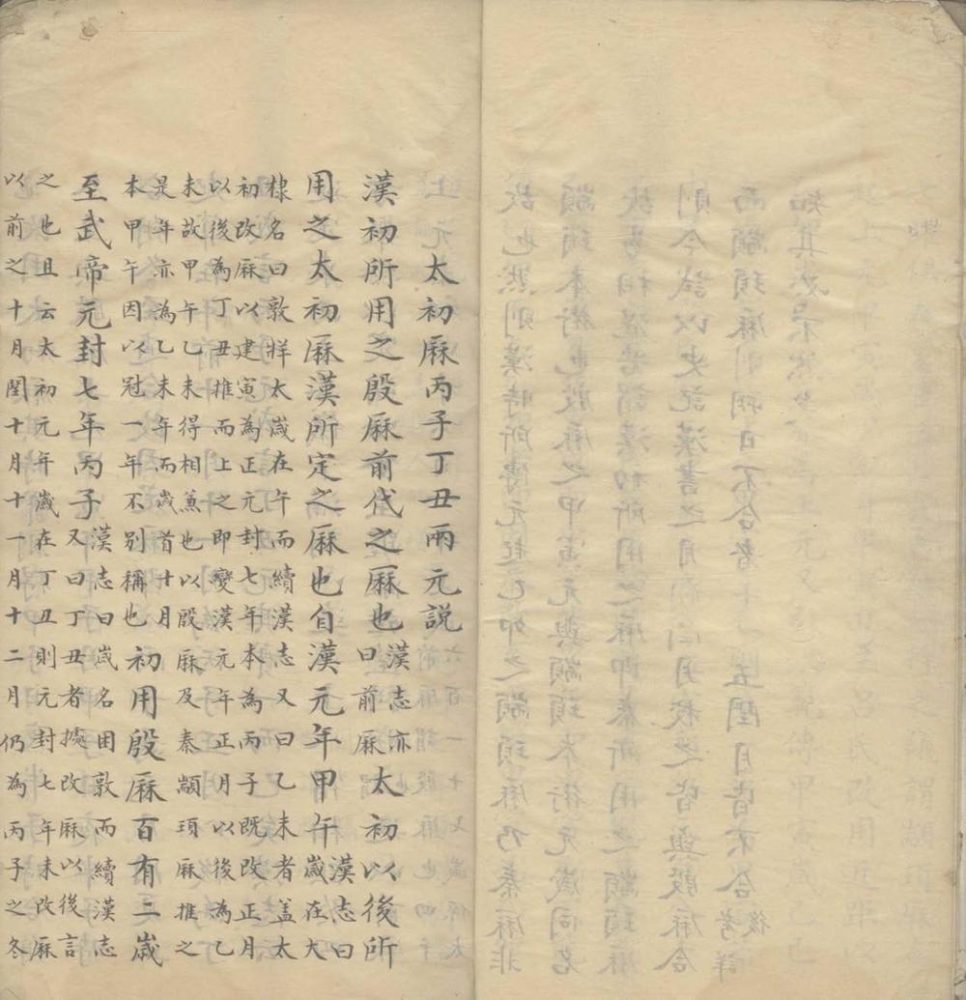 太初厤丙子丁丑兩元説
漢初所用之殷厤前代之厤也
漢志亦
曰前厤
太初以後所
用之太初厤漢所定之厤也自漢元年甲午
漢志曰
歲在大
棣名曰敦牂太歲在午而續漢志又曰乙未者盖太
初改厤以建寅為正元封七年本為丙子既改正月
以後為丁丑推而上之即變漢元年正月以後為乙
未故甲午乙未得相兼也以殷厤及秦顓頊厤推之
是年亦為乙未年而歲首十月
本甲午因以冠一年不別稱也
初用殷厤百有二歲
至武帝元封七年丙子
漢志曰歲名困敦而續漢志
又曰丁丑者據改厤以後言
之也且云太初元年歲在丁丑則元封七年未改厤
以前之十月閏十月十一月十二月仍為丙子之冬